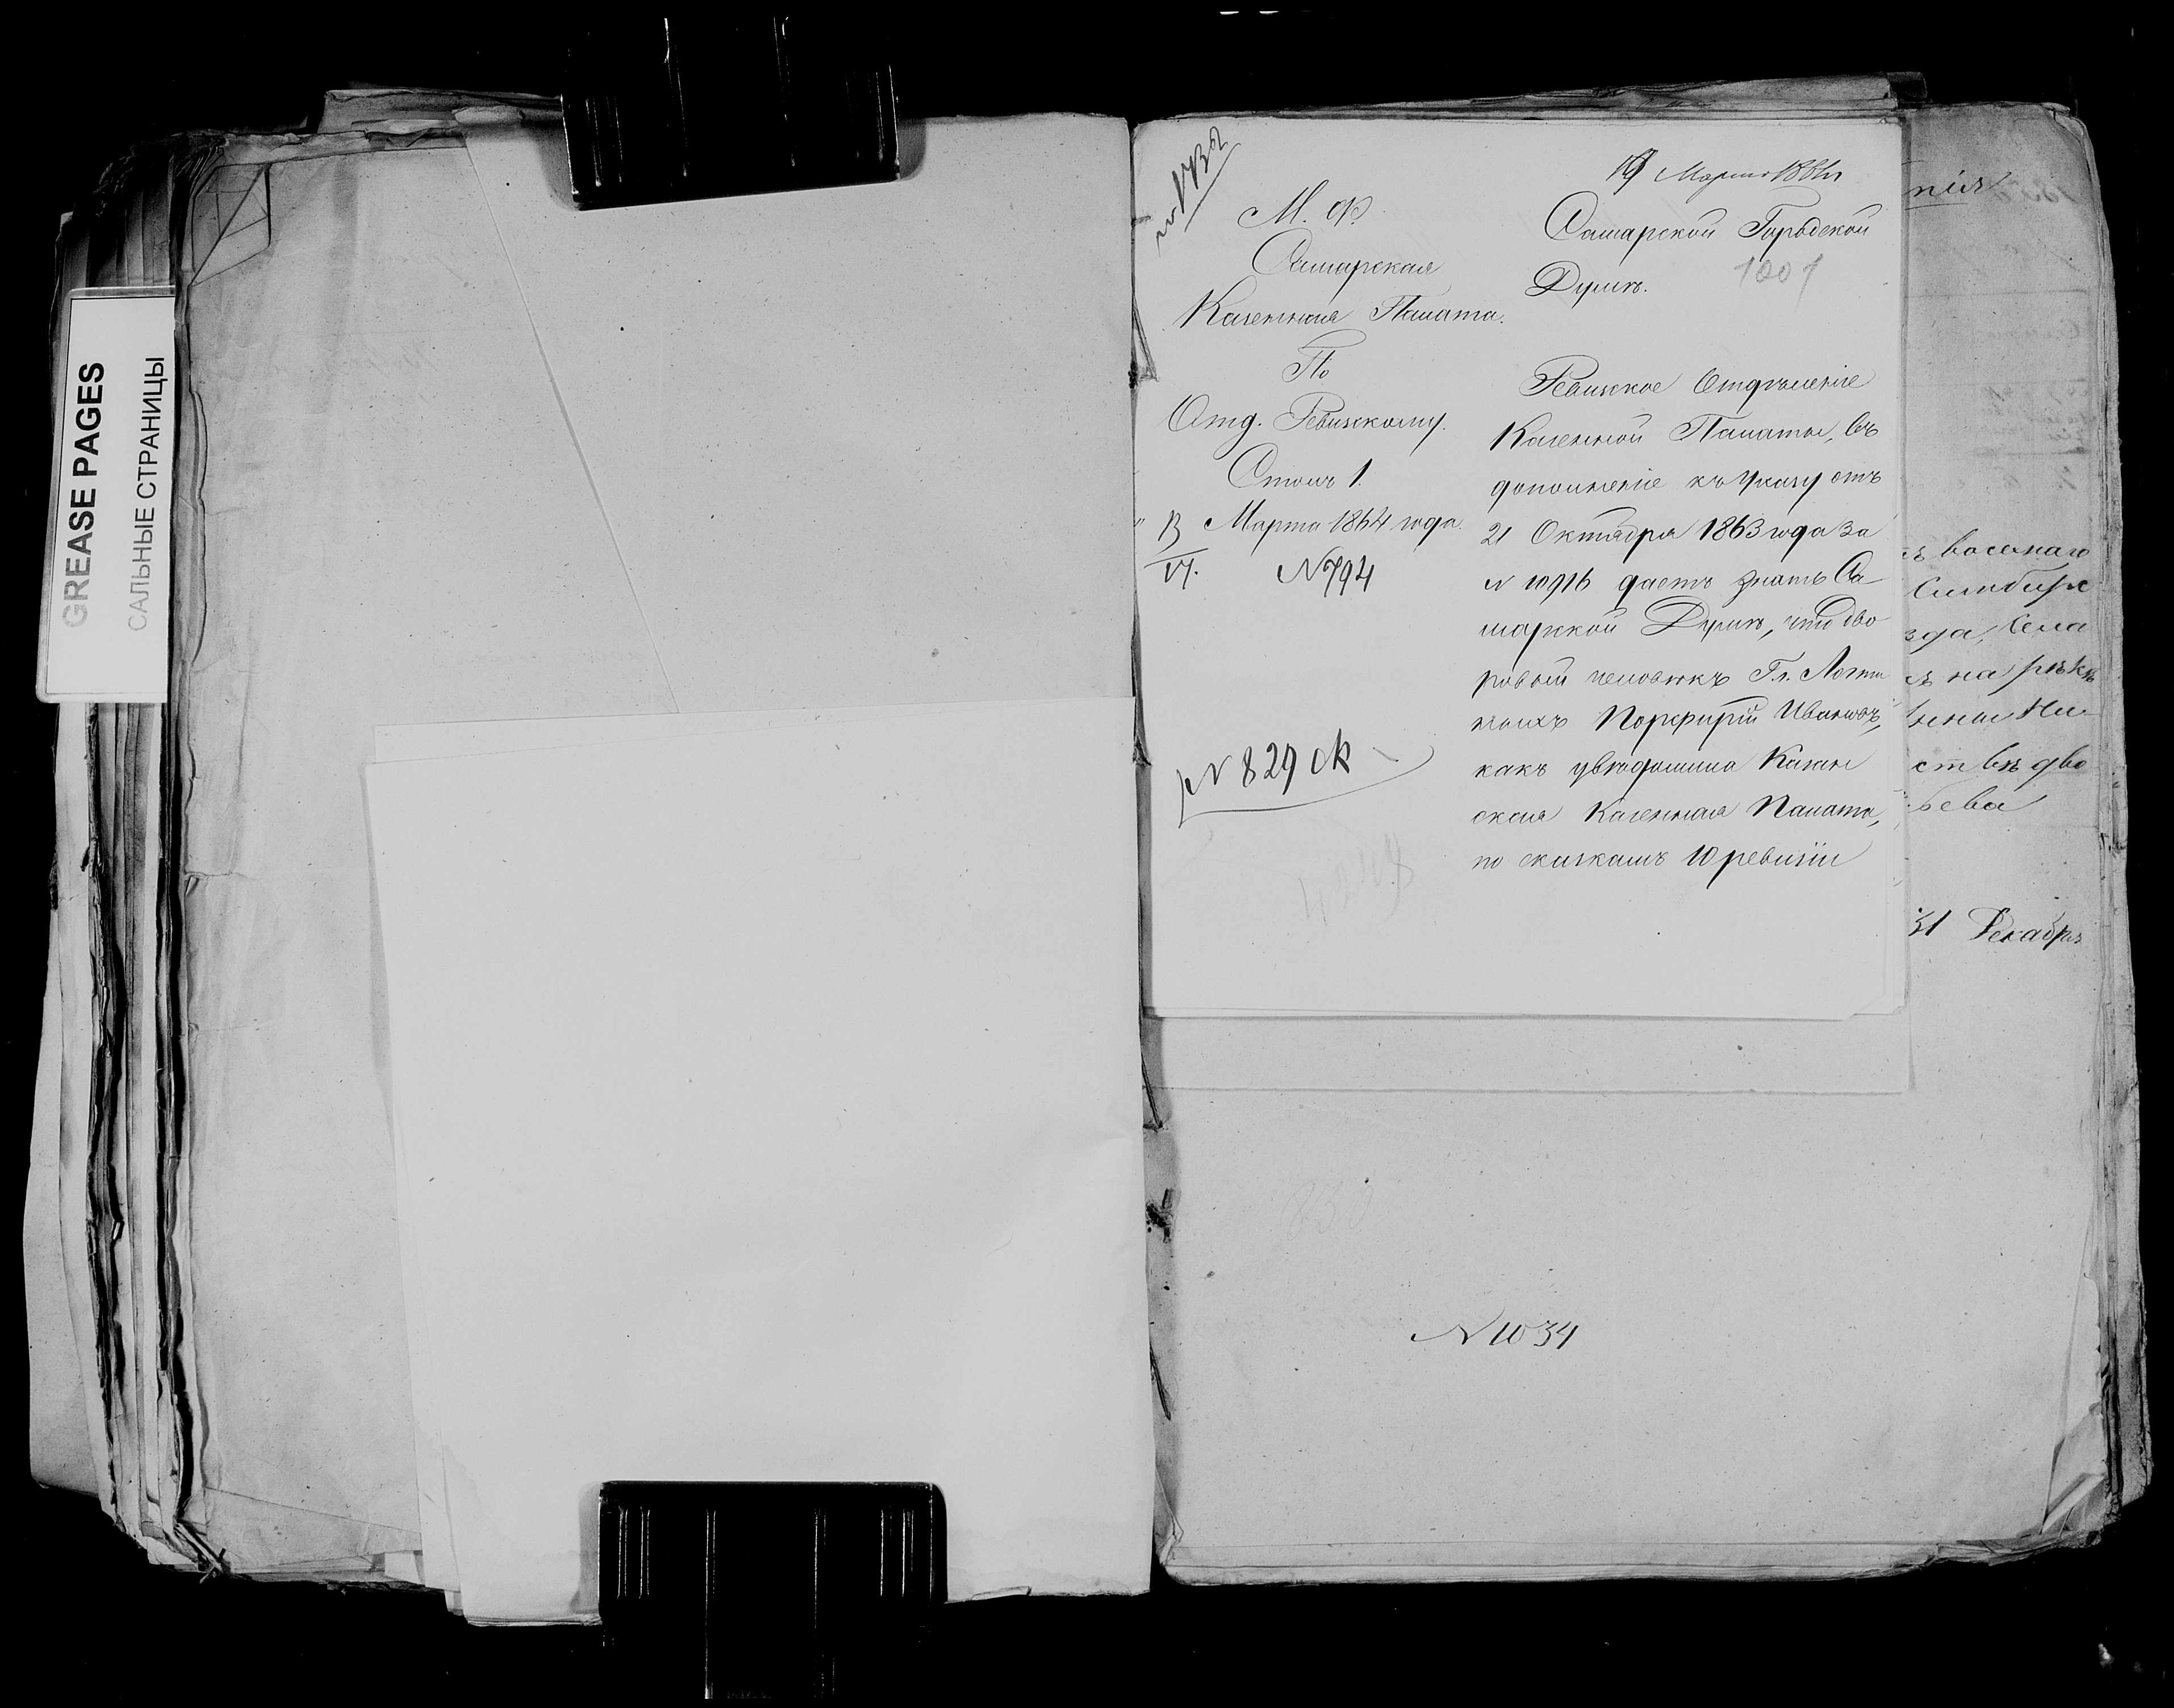 GREASE PAGES
САЛЬНЫЕ СТРАНИЦЫ
М. Ф.
Самарская
Казенная Палата.
По
Отд. Ревизскому.
Столъ 1.
" 13 Марта 1864 года.
VI. № 794
№ 829
19 Марта
Самарской Городской
Думѣ.
1001
Ревизское Отдѣленіе
Казенной Палаты, въ
дополненіе къ Указу отъ
21 Октября 1863 года за
№ 10916 даетъ знать Са-
марской Думѣ, что дво
ровый человѣкъ Гл.
Порфирій Ивановъ,
какъ увѣдомила Казан
ская Казенная Палата,
по сказкамъ 10 ревизіи
нія
Симбирс
зда, Села
на рѣкѣ
ств въ дво
бева
31 Декабря
№ 1034